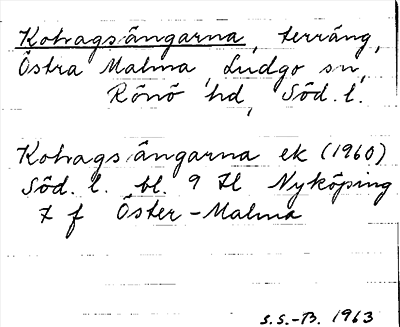 Kohagsängarna, terräng,
Östra Malma, Ludgo sn,
Rönö hd, Söd. l.
Kohagsängarna ek (1960)
Söd. l. bl. 9 H Nyköping
7 f Öster-Malma
S.S.-B. 1963